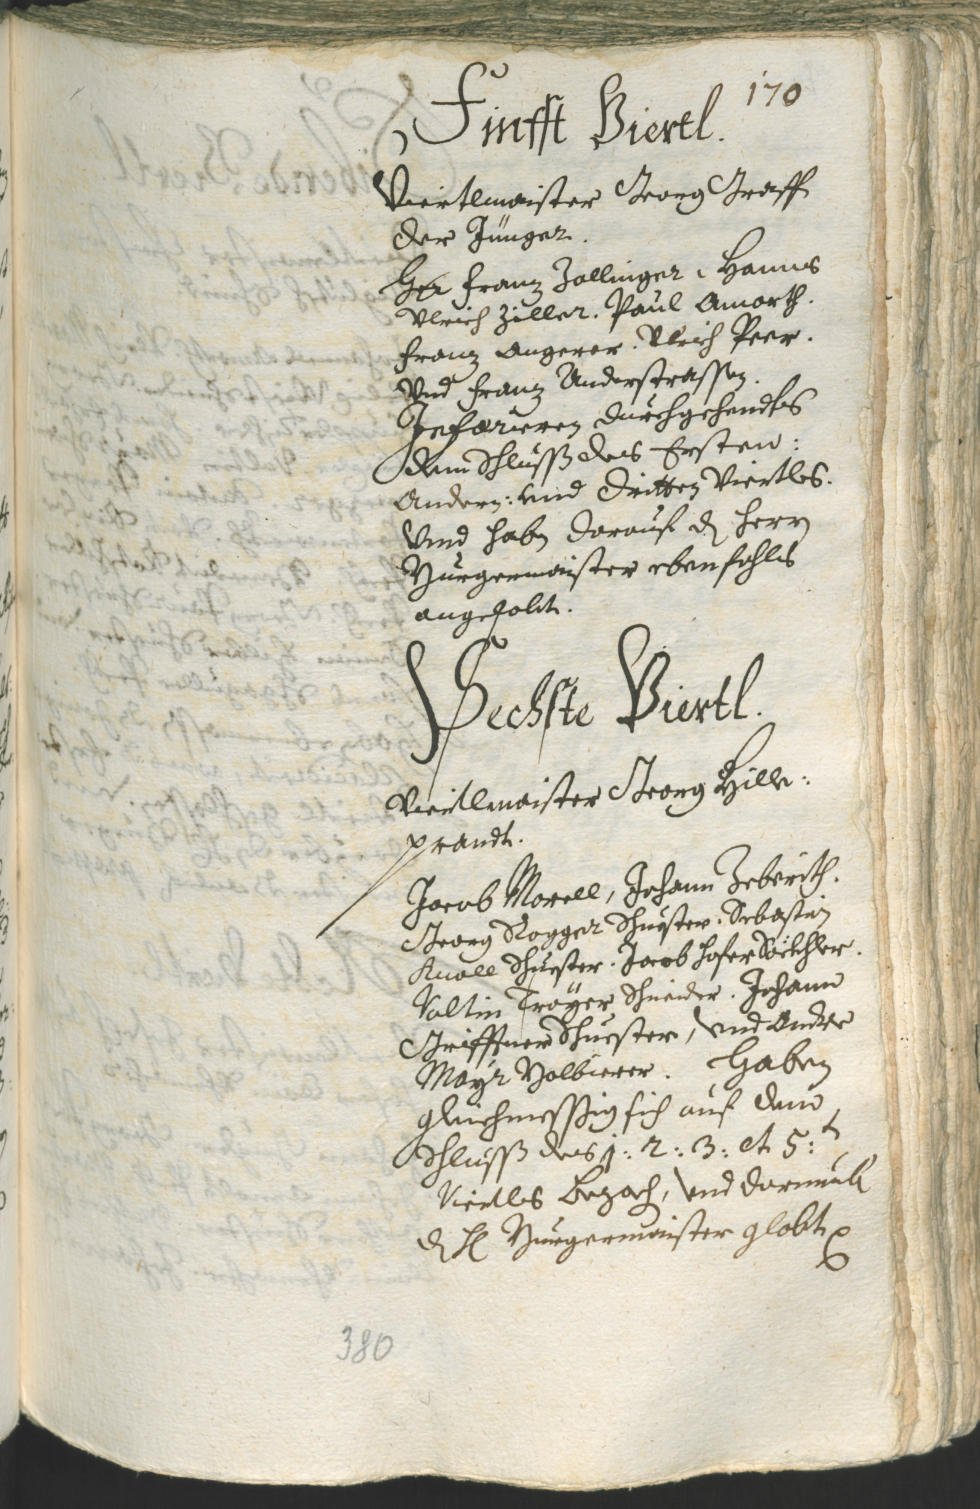 170
Finfft Viertl.
Viertlmaister Georg Graff
der Jünger.
Hr Franz Zollinger, Hanns
Ulrich Ziller. Paul Amorth.
Franz Angerer. Ulrich Peer.
Und Franz Understrassen.
Inhærieren durchgehendts
dem Schluss des Ersten:
Andern: und Dritten Viertles.
Und haben darauf dem Herrn
Burgermaister ebenfahls
angelobt.
Sechste Viertl.
Viertlmaister Georg Hille-
prandt.
Jacob Morell, Johann
Georg Rogger Schuester. Sebastian
Knoll Schuester. Jacob Hofer
Valtin Troyer Schneider. Johann
Griffner Schuester, und Andre
Mayr Balbierer. Haben
gleichmessßig sich auf dem
Schluss des 1: 2: 3: et 5:t
Viertles bezoch, und darmit
dem H Burgermaister globt
380